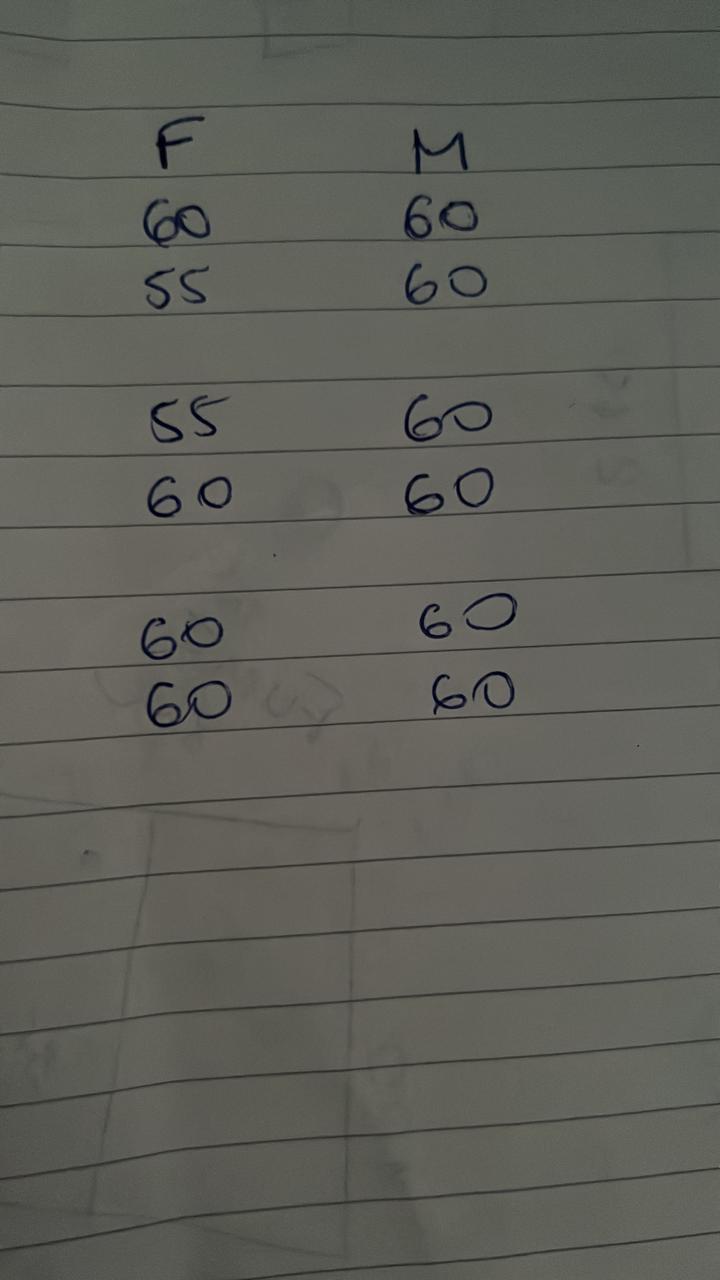 F M
60 60
55 60
55 60
60 60
60 60
60 60